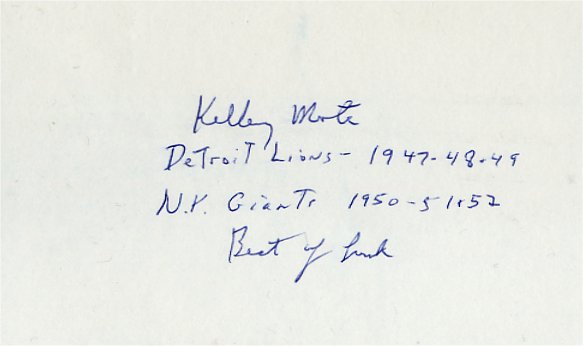 Kelley Mote
Detroit Lions - 1947-48-49
N.Y. Giants 1950-51-52
Best of luck